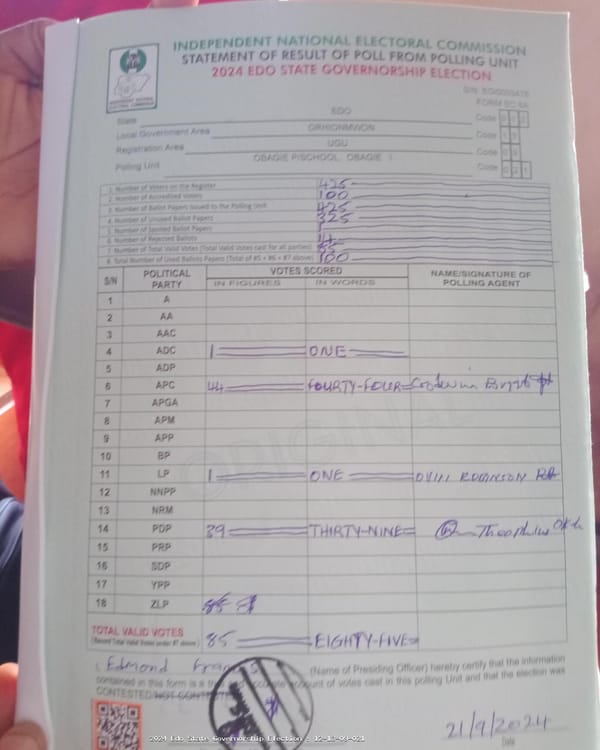 INDEPENDENT NATIONAL ELECTORAL COMMISSION
STATEMENT OF RESULT OF POLL FROM POLLING UNIT
2024 EDO STATE GOVERNORSHIP ELECTION
FORM EC 8A
State EDO Code
Local Government Area ORHIONMWON Code
Registration Area UGU Code
Polling Unit OBAGIE P/SCHOOL, OBAGIE I Code
1. Number of Voters on the Register 425
2. Number of Accredited Voters 100
3. Number of Ballot Papers Issued to the Polling Unit 425
4. Number of Unused Ballot Papers 325
5. Number of Spoiled Ballot Papers 1
6. Number of Rejected Ballots 14
7. Number of Total Valid Votes (Total Valid Votes cast for all parties) 85
8. Total Number of Used Ballots Papers (Total of #5 + #6 + #7 above) 100
S/N POLITICAL PARTY VOTES SCORED NAME/SIGNATURE OF POLLING AGENT
IN FIGURES IN WORDS
1 A
2 AA
3 AAC
4 ADC 1 ONE
5 ADP
6 APC 44 FOURTY-FOUR
7 APGA
8 APM
9 APP
10 BP
11 LP 1 ONE ROBINSON
12 NNPP
13 NRM
14 PDP 39 THIRTY-NINE Theophilus
15 PRP
16 SDP
17 YPP
18 ZLP
ORIGINAL
TOTAL VALID VOTES 85 EIGHTY-FIVE
I Edmond (Name of Presiding Officer) hereby certify that the information
contained in this form is a true and accurate account of votes cast in this polling Unit and that the election was
CONTESTED/NOT CONTESTED
21/9/2024
Date
2024 Edo State Governorship Election - 12-12-09-021